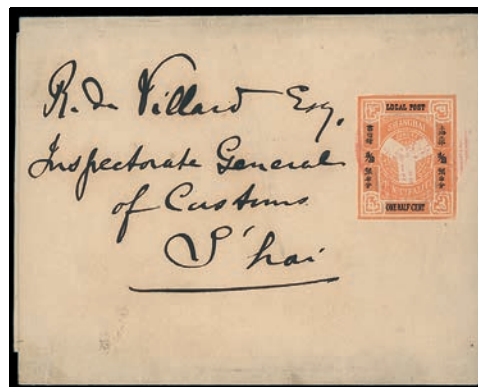 R. de Villard Esq.
Inspectorate General
of Customs
S'hai
LOCAL POST
SHANGHAI
ONE HALF CENT